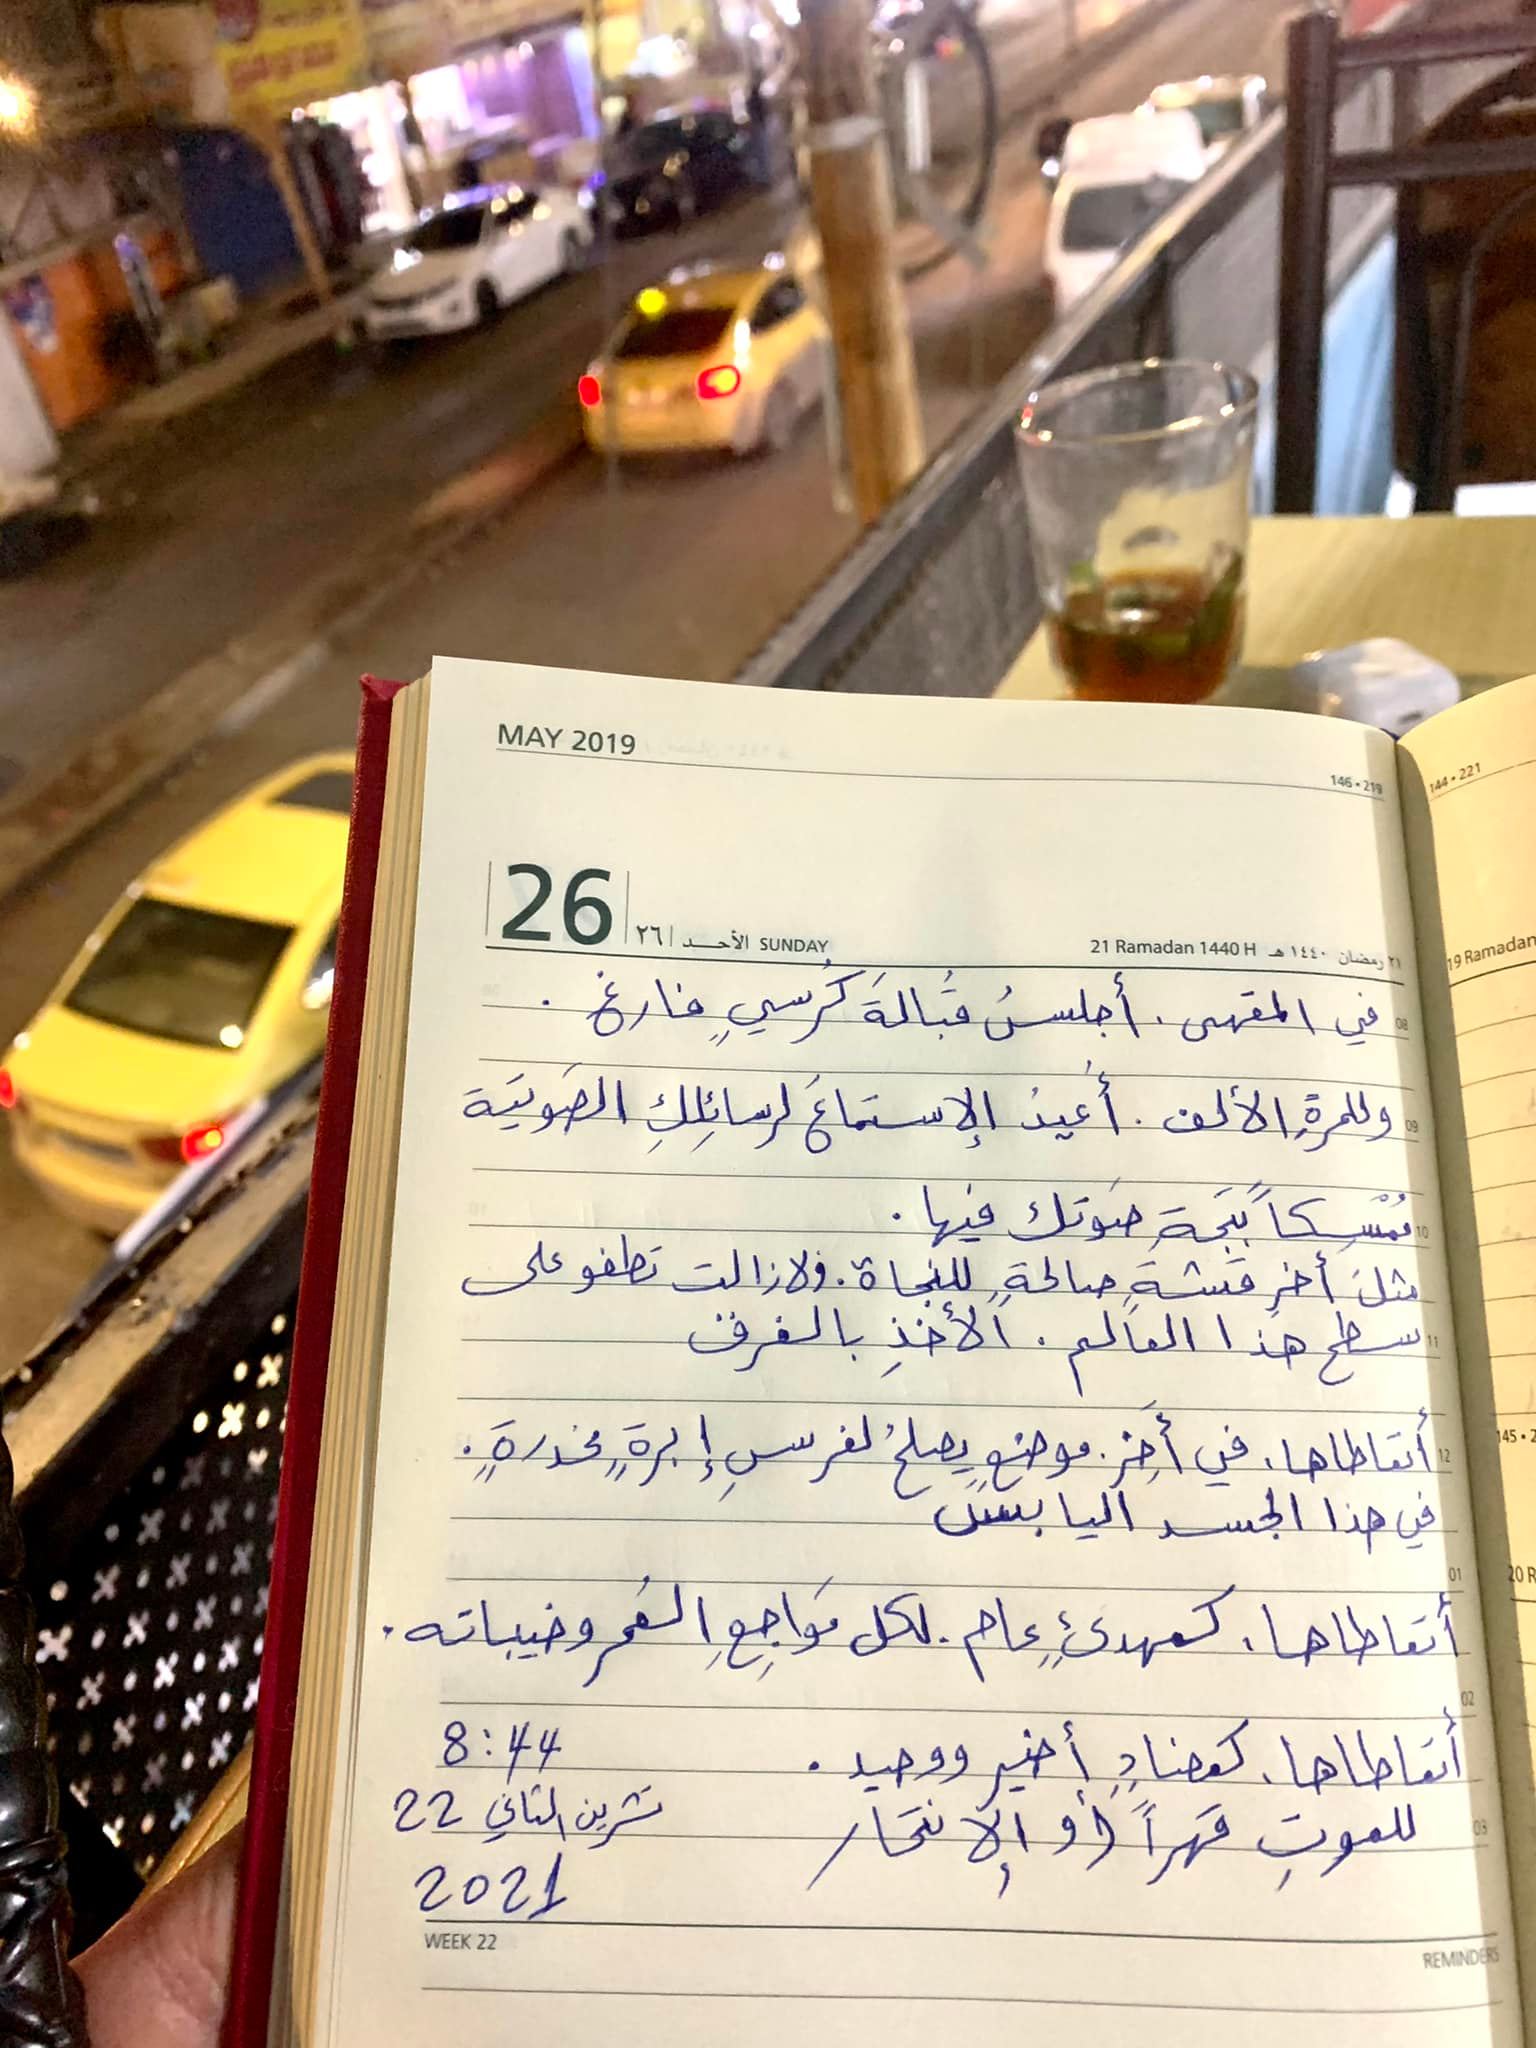 MAY 2019
146 • 219
144 • 221
26 ٢٦ الأحــد SUNDAY
21 Ramadan 1440 H ٢١ رمضان ١٤٤٠ هـ
19 Ramadan
08 في المقهى . أجلسُ قُبالةَ كُرسيٍ فارغ .
09 وللمرةِ الألف . أُعيدُ الإستماعَ لرسائِلكِ الصَوتيَة
10 مُمْسِكاً بَبَحَةِ صَوتك فيها .
مثلَ أخرِ قَشةٍ صالحةٍ للنجاة . ولازالت تطفو على
11 سطحِ هَذا العالم . الأخذِ بالغرق
12 أتعاطاها ، في أَخِر . موضعٍ يصلحُ لغرسِ إبرةٍ مخدرةٍ .
في هذا الجسد اليابس
01
أتعاطاها ، كمهدئٍ عام . لكل مَواجِعِ العُمر وخيباته .
02
أتعاطاها ، كمضادٍ أخير ووحيد .
8:44
03 للموتِ قهراً أو الإنتحار
تشرين الثاني 22
2021
WEEK 22
REMINDERS
145 • 2
20 R